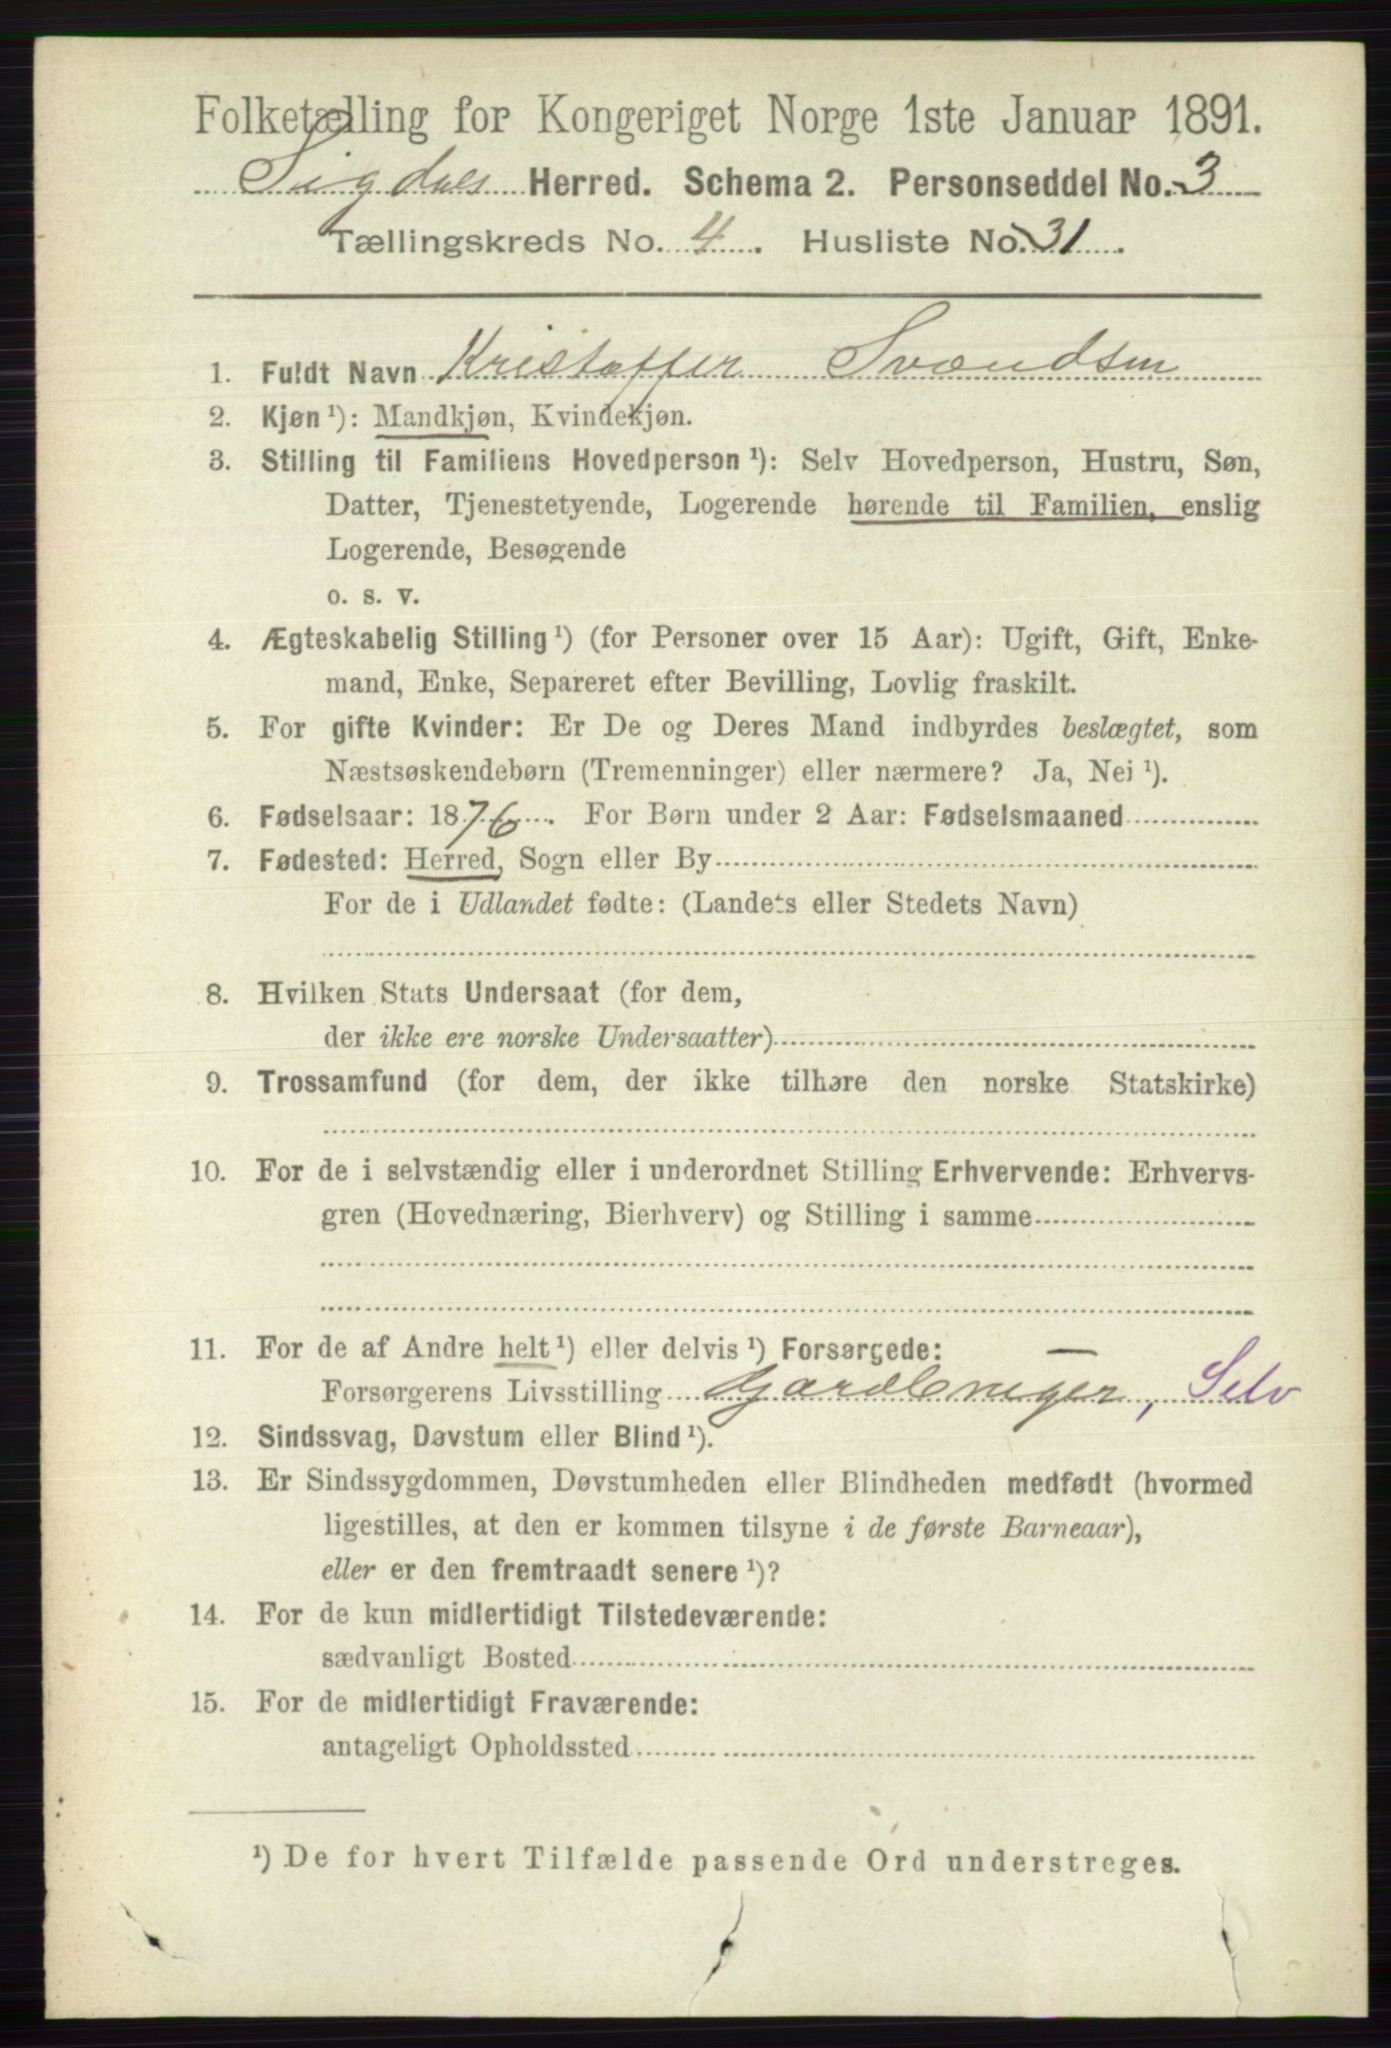 Folketælling for Kongeriget Norge 1ste Januar 1891.
Sigdals Herred. Schema 2. Personseddel No. 3
Tællingskreds No. 4. Husliste No. 31.
1. Fuldt Navn Kristoffer Svendsen
2. Kjøn ¹): Mandkjøn, Kvindekjøn.
3. Stilling til Familiens Hovedperson ¹): Selv Hovedperson, Hustru, Søn,
Datter, Tjenestetyende, Logerende hørende til Familien, enslig
Logerende, Besøgende
o. s. v.
4. Ægteskabelig Stilling ¹) (for Personer over 15 Aar): Ugift, Gift, Enke-
mand, Enke, Separeret efter Bevilling, Lovlig fraskilt.
5. For gifte Kvinder: Er De og Deres Mand indbyrdes beslægtet, som
Næstsøskendebørn (Tremenninger) eller nærmere? Ja, Nei ¹).
6. Fødselsaar: 1876. For Børn under 2 Aar: Fødselsmaaned
7. Fødested: Herred, Sogn eller By
For de i Udlandet fødte: (Landets eller Stedets Navn)
8. Hvilken Stats Undersaat (for dem,
der ikke ere norske Undersaatter)
9. Trossamfund (for dem, der ikke tilhøre den norske Statskirke)
10. For de i selvstændig eller i underordnet Stilling Erhvervende: Erhvervs-
gren (Hovednæring, Bierhverv) og Stilling i samme
11. For de af Andre helt ¹) eller delvis ¹) Forsørgede: —
Forsørgerens Livsstilling Gardbruger, Selv
12. Sindssvag, Døvstum eller Blind ¹).
13. Er Sindssygdommen, Døvstumheden eller Blindheden medfødt (hvormed
ligestilles, at den er kommen tilsyne i de første Barneaar),
eller er den fremtraadt senere ¹)?
14. For de kun midlertidigt Tilstedeværende:
sædvanligt Bosted
15. For de midlertidigt Fraværende:
antageligt Opholdssted
¹) De for hvert Tilfælde passende Ord understreges.